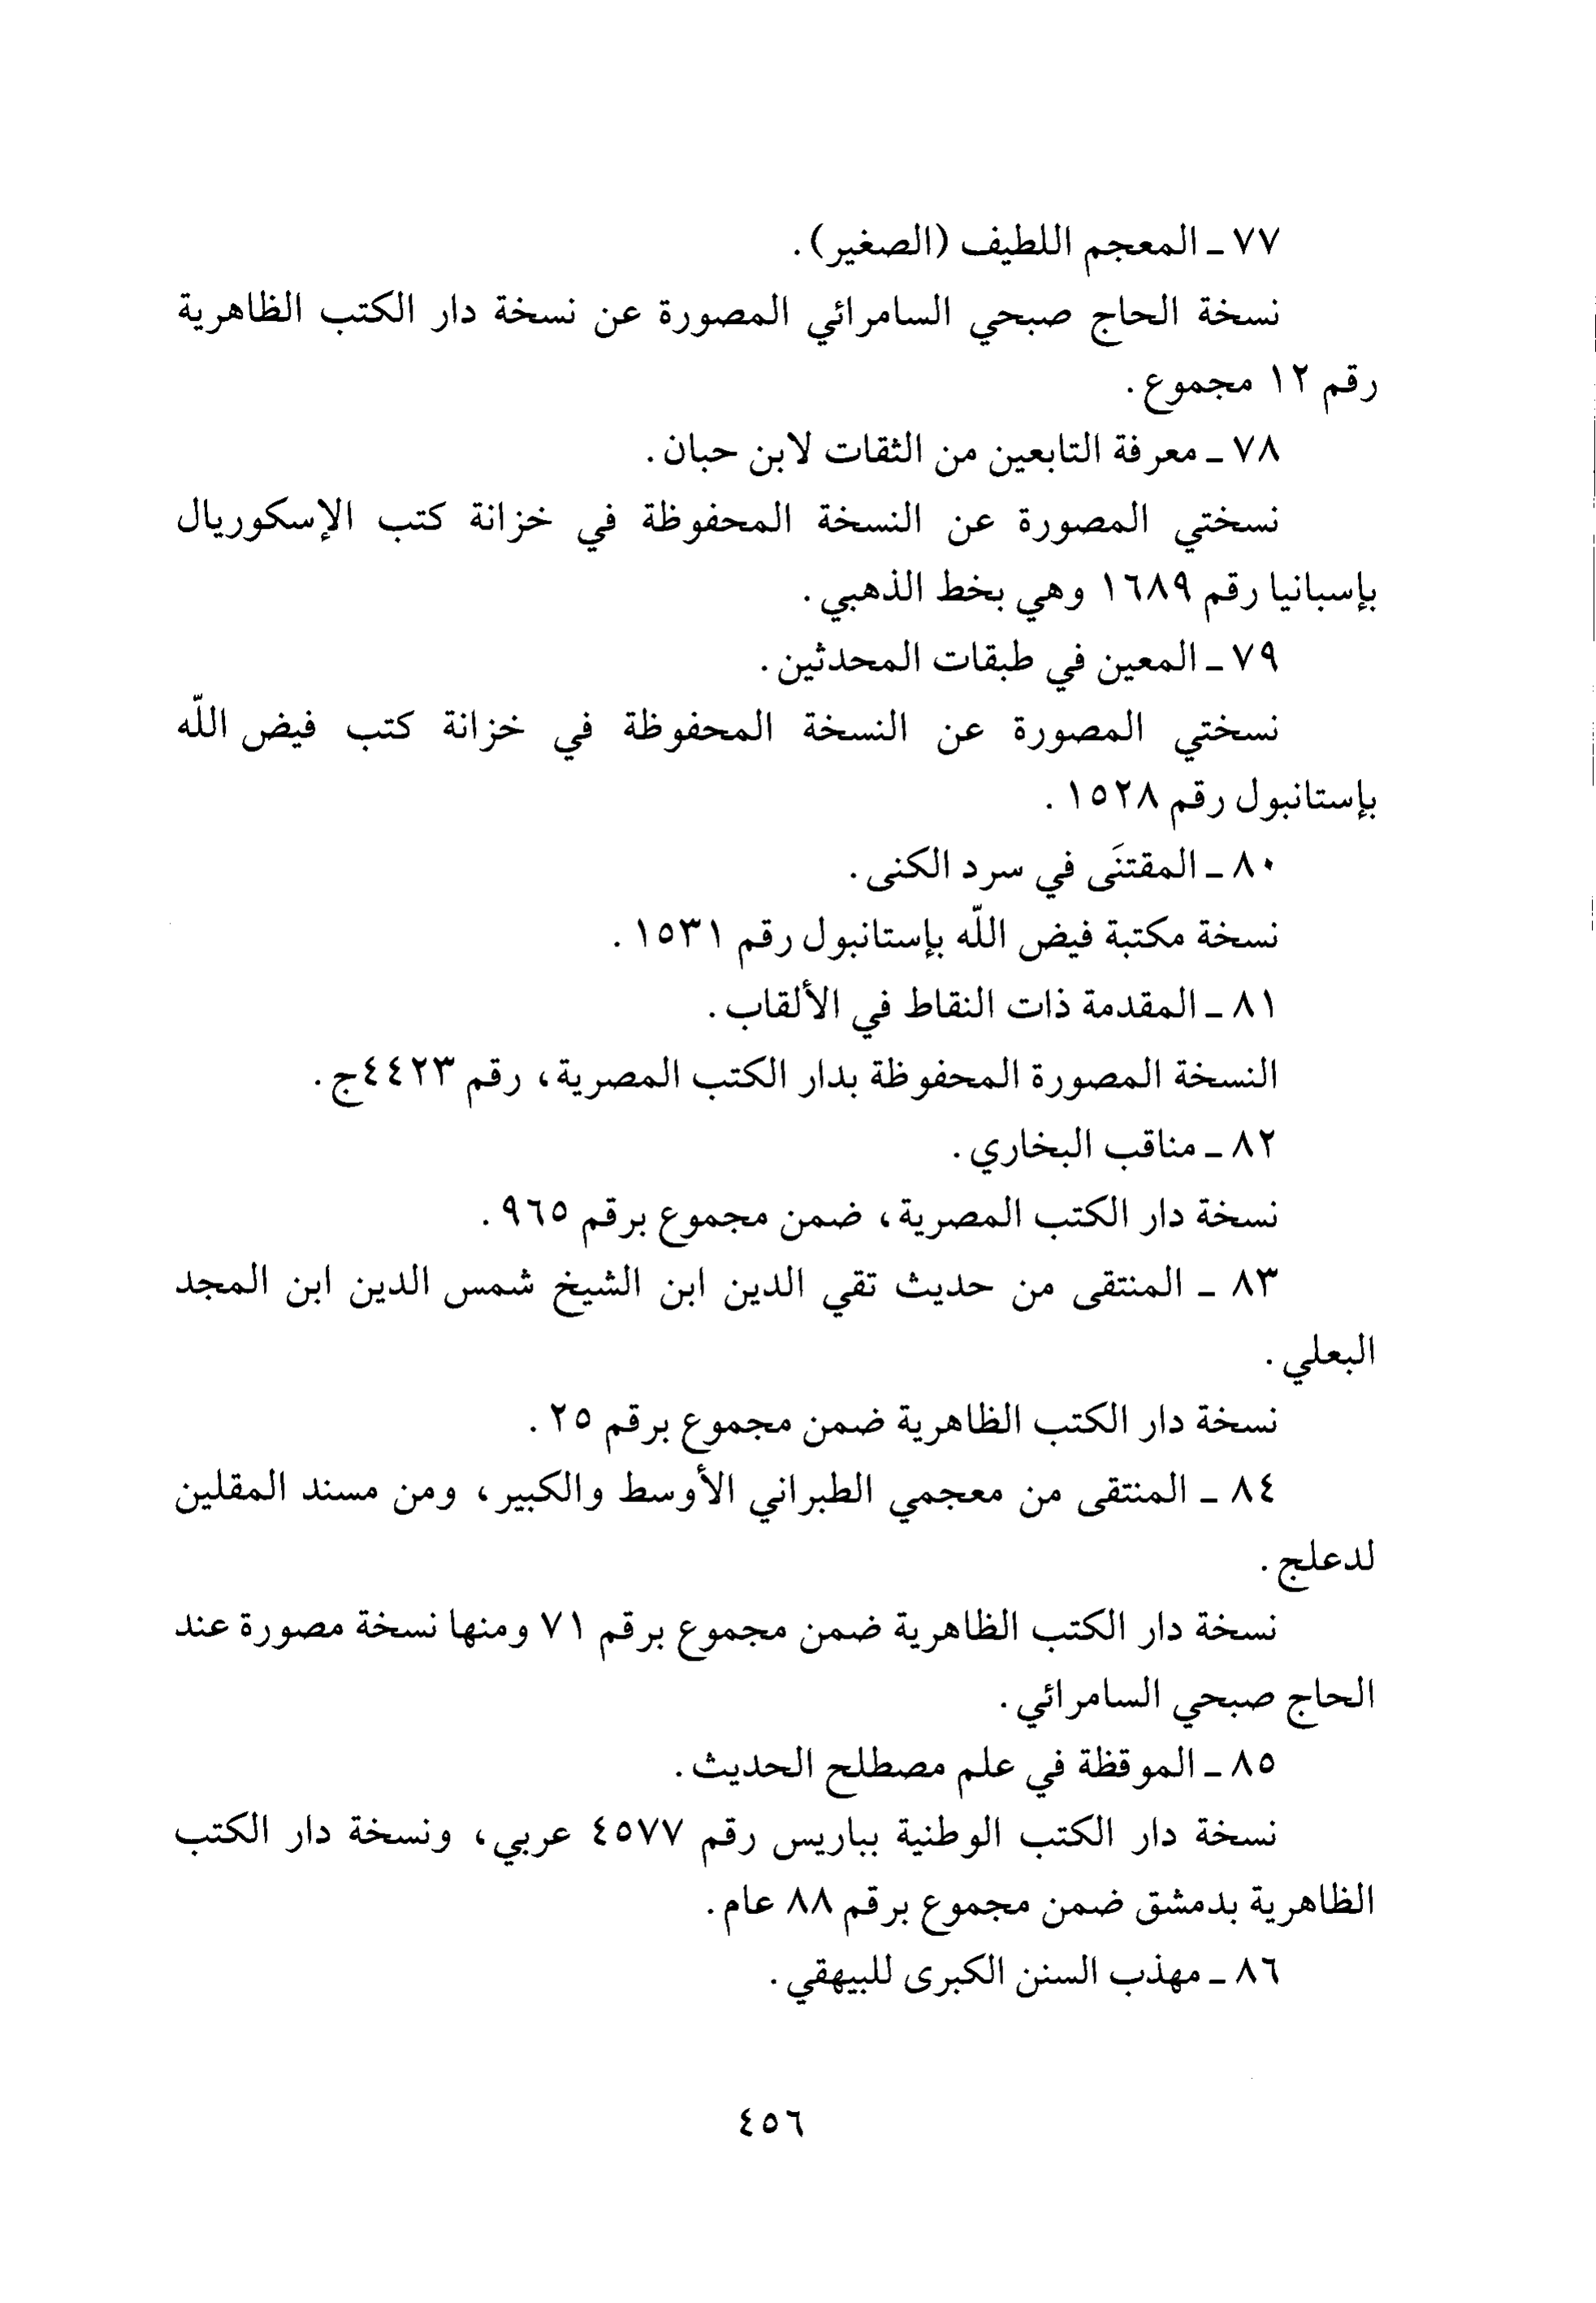 ٧٧ ـ المعجم اللطيف (الصغير).
نسخة الحاج صبحي السامرائي المصورة عن نسخة دار الكتب الظاهرية
رقم ١٢ مجموع.
٧٨ ـ معرفة التابعين من الثقات لابن حبان.
نسختي المصورة عن النسخة المحفوظة في خزانة كتب الإسكوريال
بإسبانيا رقم ١٦٨٩ وهي بخط الذهبي.
٧٩ ـ المعين في طبقات المحدثين.
نسختي المصورة عن النسخة المحفوظة في خزانة كتب فيض اللّه
بإستانبول رقم ١٥٢٨.
٨٠ ـ المقتنَى في سرد الكنى.
نسخة مكتبة فيض اللّه بإستانبول رقم ١٥٣١.
٨١ ـ المقدمة ذات النقاط في الألقاب.
النسخة المصورة المحفوظة بدار الكتب المصرية، رقم ٤٤٢٣ج.
٨٢ ـ مناقب البخاري.
نسخة دار الكتب المصرية، ضمن مجموع برقم ٩٦٥.
٨٣ ـ المنتقى من حديث تقي الدين ابن الشيخ شمس الدين ابن المجد
البعلي.
نسخة دار الكتب الظاهرية ضمن مجموع برقم ٢٥.
٨٤ ـ المنتقى من معجمي الطبراني الأوسط والكبير، ومن مسند المقلين
لدعلج.
نسخة دار الكتب الظاهرية ضمن مجموع برقم ٧١ ومنها نسخة مصورة عند
الحاج صبحي السامرائي.
٨٥ ـ الموقظة في علم مصطلح الحديث.
نسخة دار الكتب الوطنية بباريس رقم ٤٥٧٧ عربي، ونسخة دار الكتب
الظاهرية بدمشق ضمن مجموع برقم ٨٨ عام.
٨٦ ـ مهذب السنن الكبرى للبيهقي.
٤٥٦